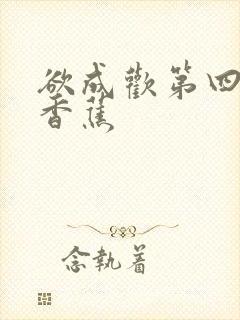 欲成歡第四
香蕉
念執着